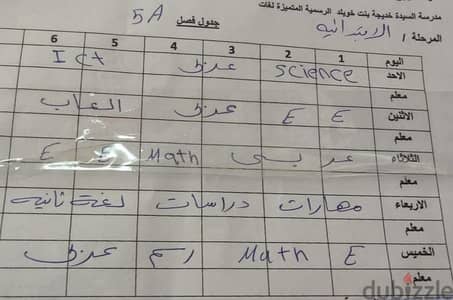 مدرسة السيدة خديجة بنت خويلد الرسمية المتميزة لغات
المرحلة / الابتدائية جدول فصل 5A
اليوم 1 2 3 4 5 6
الاحد Science عربى Ict
معلم
الاثنين E E عربى العاب
معلم
الثلاثاء عربى Math E E
معلم
الاربعاء مهارات دراسات لغة ثانيه
معلم
الخميس E Math رسم عربى
معلم
dubizzle